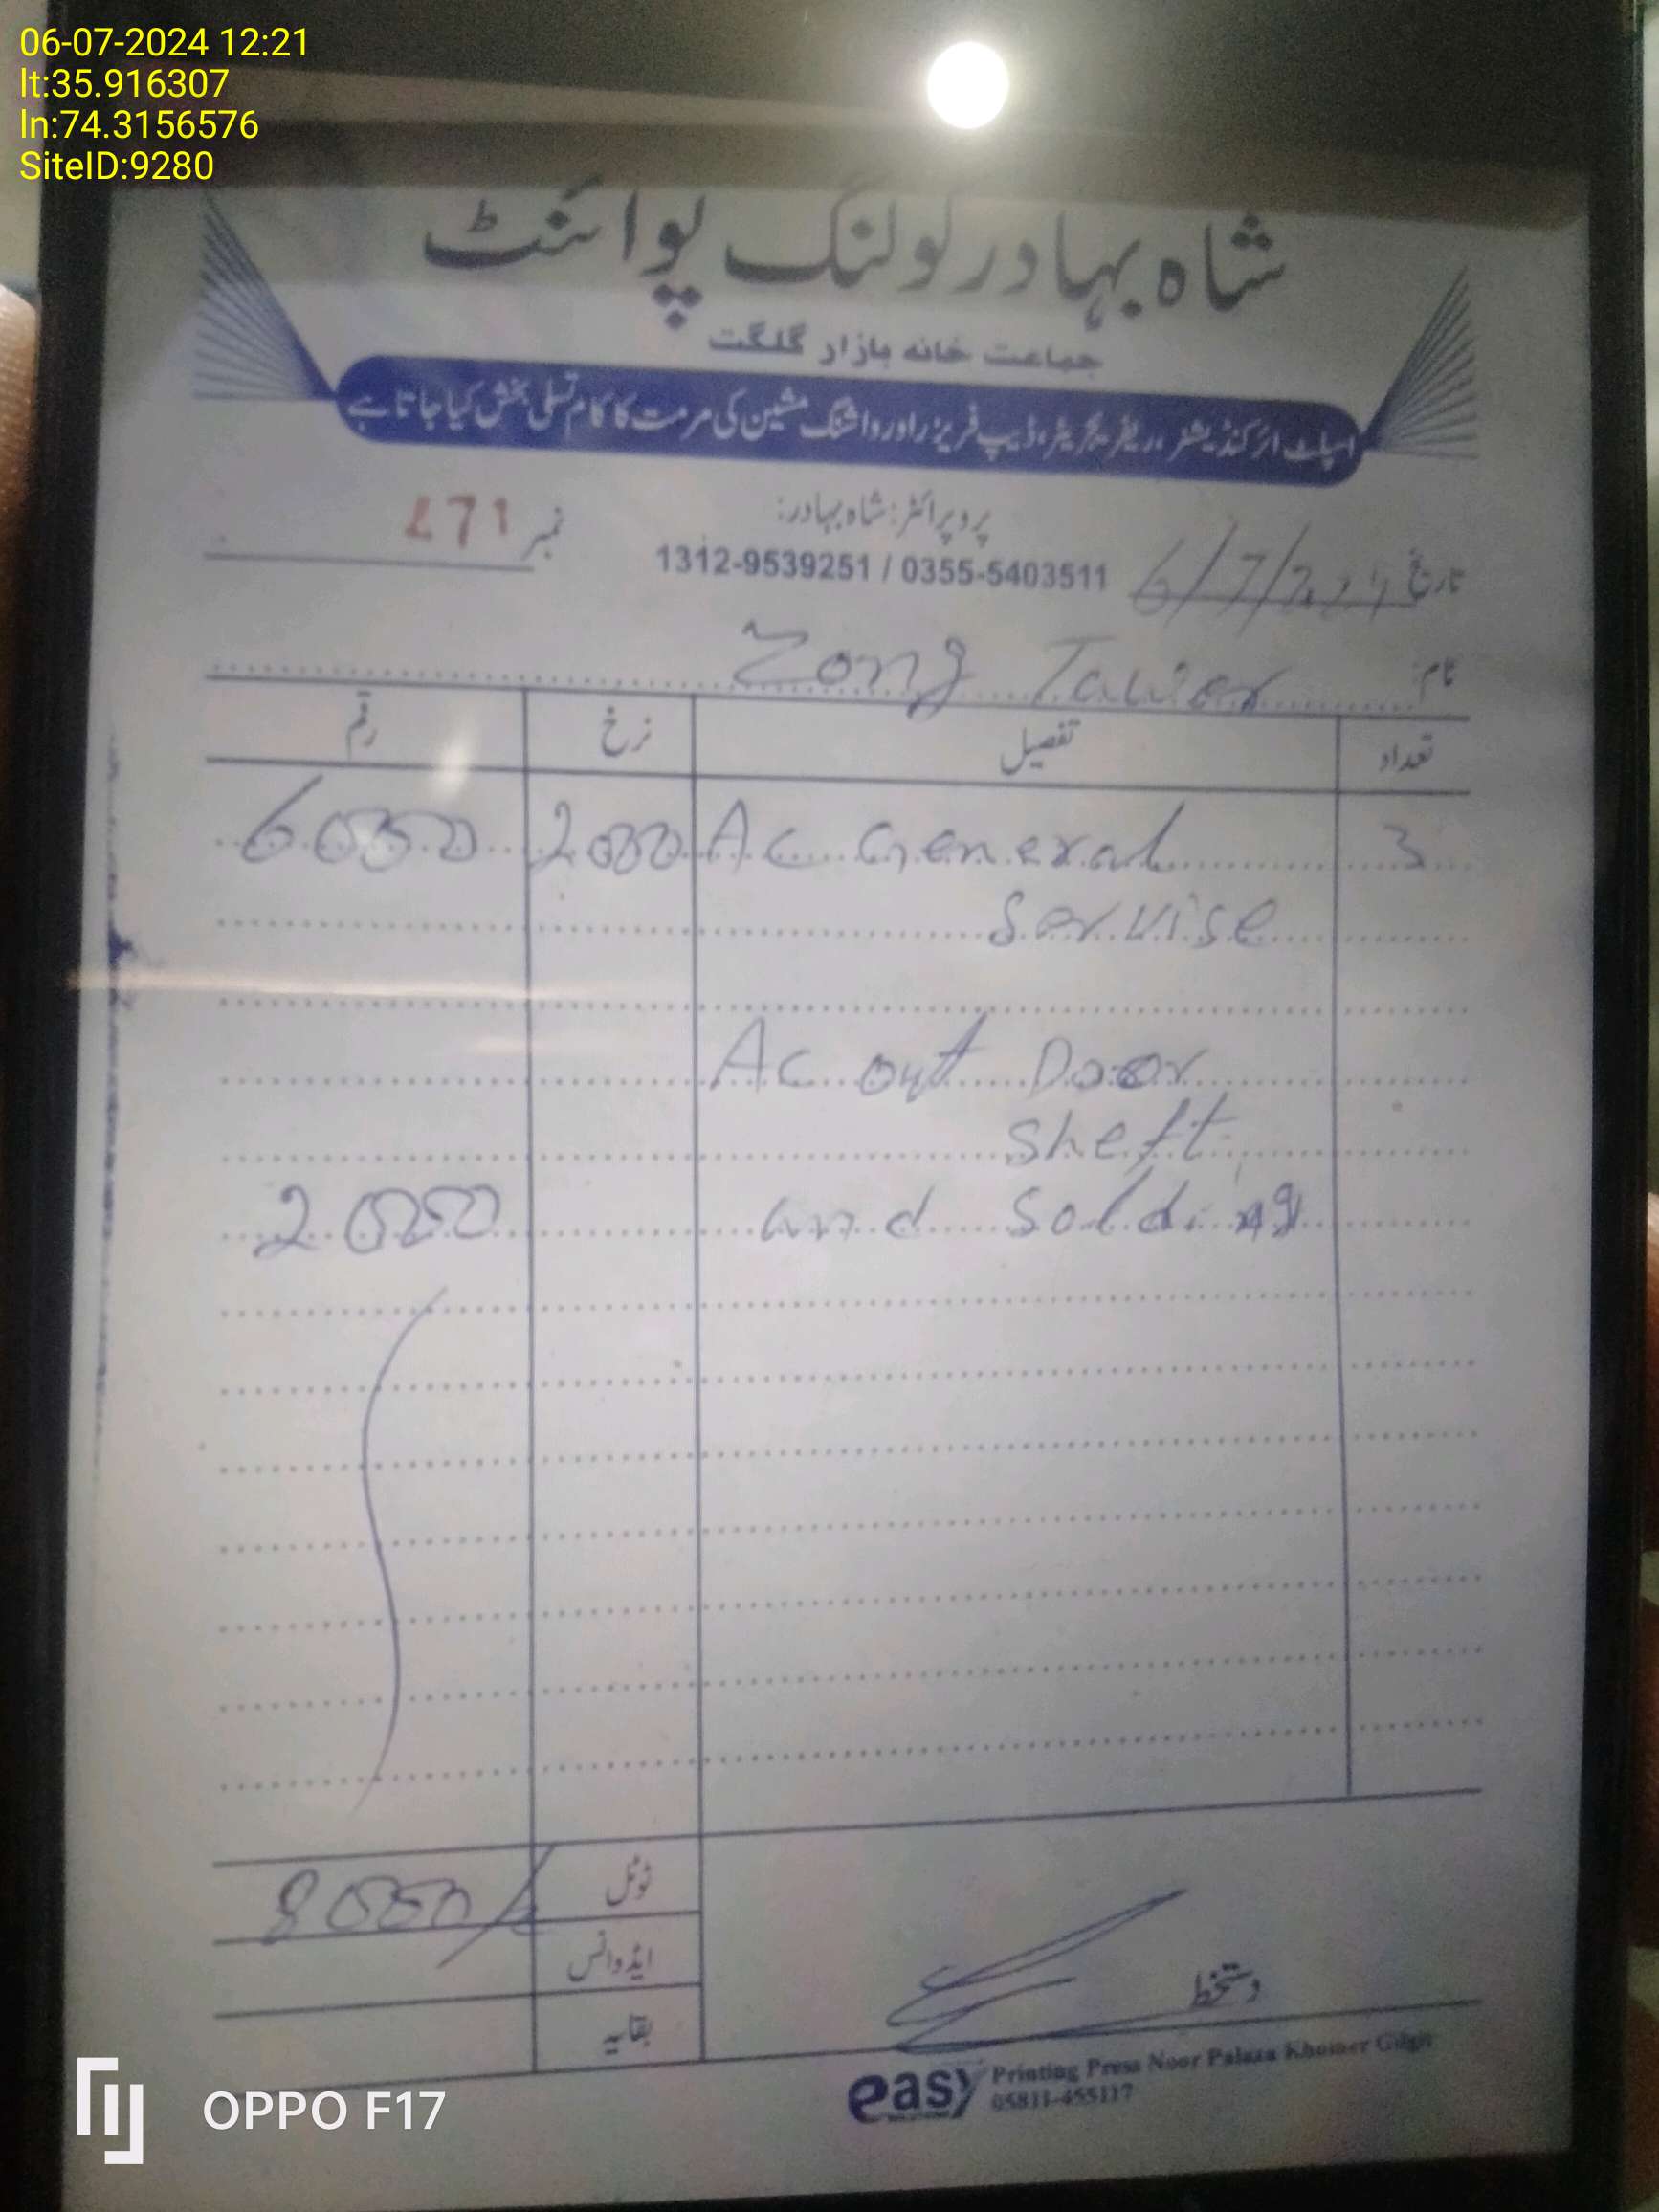 06-07-2024 12:21
lt:35.916307
ln:74.3156576
SiteID:9280
شاہ بہادر کولنگ پوائنٹ
جماعت خانہ بازار گلگت
اسپلٹ ائرکنڈیشنر، ریفریجریٹر، ڈیپ فریزر اور واشنگ مشین کی مرمت کا کام تسلی بخش کیا جاتا ہے
پروپرائٹر: شاہ بہادر:
نمبر 471
1312-9539251 / 0355-5403511
تاریخ 6/7/2024
نام Zong Tawer
تعداد تفصیل نرخ رقم
3 Ac General 2000 6000
Servise
Ac out Door
sheft
and Solding 2000
ٹوٹل 8000/
ایڈوانس
بقایہ
دستخط
easy Printing Press Noor Palaza Khomer Gilgit
05811-455117
OPPO F17